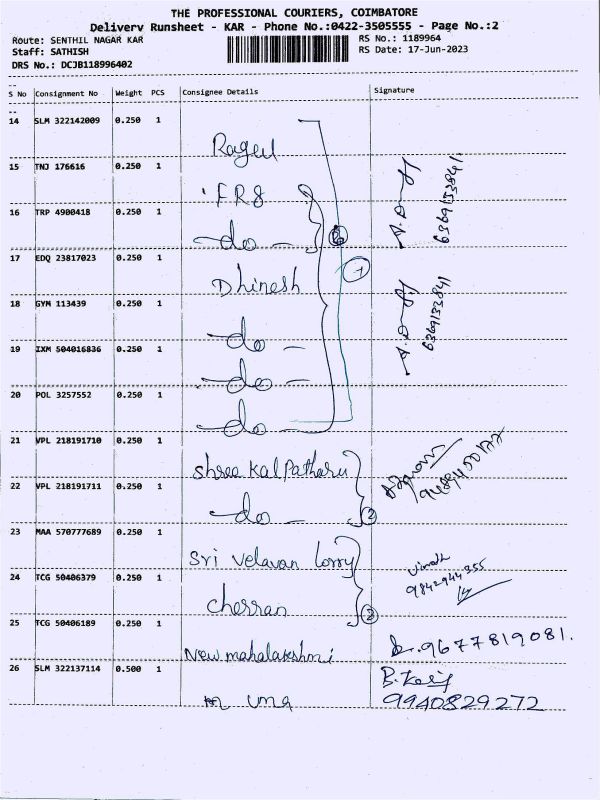 THE PROFESSIONAL COURIERS, COIMBATORE
Delivery Runsheet - KAR - Phone No.:0422-3505555 - Page No.:2
Route: SENTHIL NAGAR KAR
RS No.: 1189964
Staff: SATHISH
RS Date: 17-Jun-2023
DRS No.: DCJB118996402
S No Consignment No Weight PCS Consignee Details Signature
14 SLM 322142009 0.250 1
Ragul
15 TNJ 176616 0.250 1
FR8
16 TRP 4900418 0.250 1
-do-
6369133841
17 EDQ 23817023 0.250 1
Dhinesh
18 GYM 113439 0.250 1
-do-
6369133841
19 IXM 504016836 0.250 1
-do-
20 POL 3257552 0.250 1
-do
7
21 VPL 218191710 0.250 1
Shree Kalpatharu
22 VPL 218191711 0.250 1
-do- 2
23 MAA 570777689 0.250 1
Sri Velavan lorry
Vinoth
9842944355
24 TCG 50406379 0.250 1
Cherran
25 TCG 50406189 0.250 1
New mahalakshmi
9677819081.
26 SLM 322137114 0.500 1
m uma
9940829272